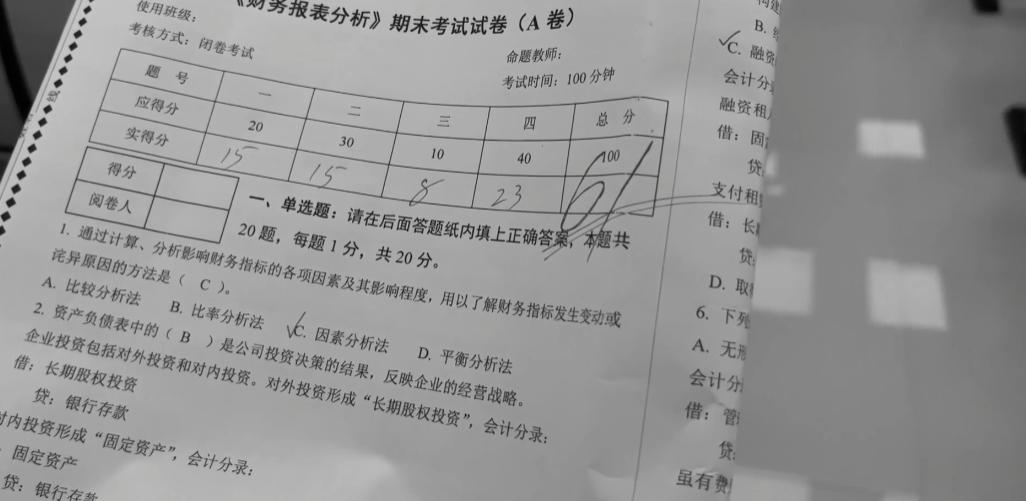 《财务报表分析》期末考试试卷（A 卷）
使用班级：
命题教师：
考核方式：闭卷考试
考试时间：100 分钟
题 号 一 二 三 四 总 分
应得分 20 30 10 40 100
实得分 15 15 8 23 61
得分
阅卷人
一、单选题：请在后面答题纸内填上正确答案，本题共
20 题，每题 1 分，共 20 分。
1. 通过计算、分析影响财务指标的各项因素及其影响程度，用以了解财务指标发生变动或
诧异原因的方法是（ C ）。
A. 比较分析法 B. 比率分析法 C. 因素分析法 D. 平衡分析法
2. 资产负债表中的（ B ）是公司投资决策的结果，反映企业的经营战略。
企业投资包括对外投资和对内投资。对外投资形成“长期股权投资”，会计分录：
借：长期股权投资
贷：银行存款
对内投资形成“固定资产”，会计分录：
固定资产
贷：银行存款
B.
C. 融资
会计分
融资租
借：固
贷
支付租
借：长
贷：
D. 取
6. 下列
A. 无形
会计分
借：管
贷：
虽有费